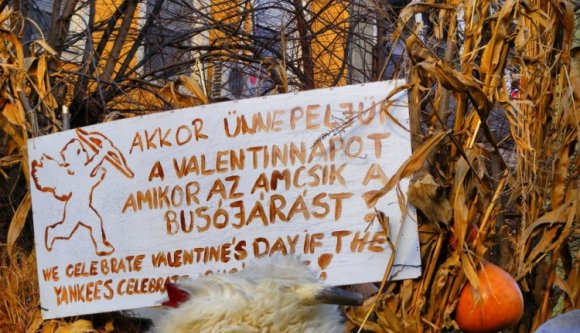 AKKOR ÜNNEPELJÜK
A VALENTINNAPOT
AMIKOR AZ AMCSIK A
BUSÓJÁRÁST!
WE CELEBRATE VALENTINE'S DAY IF THE
YANKEES CELEBRATE